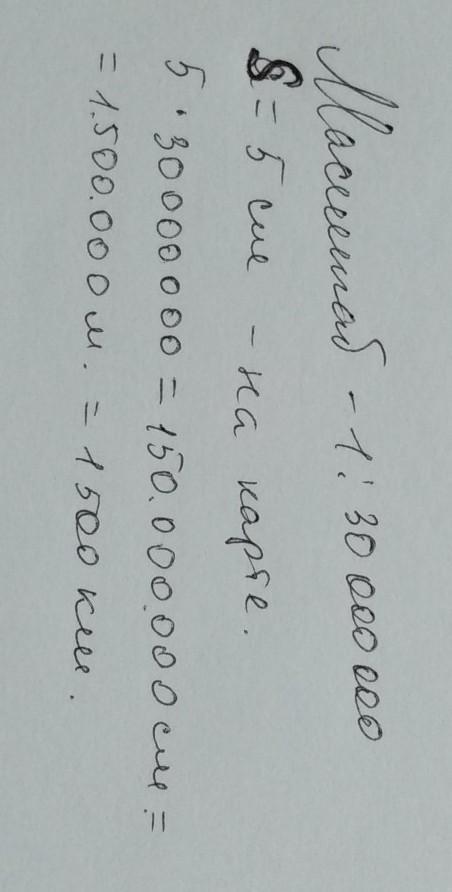 Масштаб - 1:30 000 000
S = 5 см - на карте.
5 · 30000000 = 150.000.000 см =
= 1.500.000 м. = 1500 км.